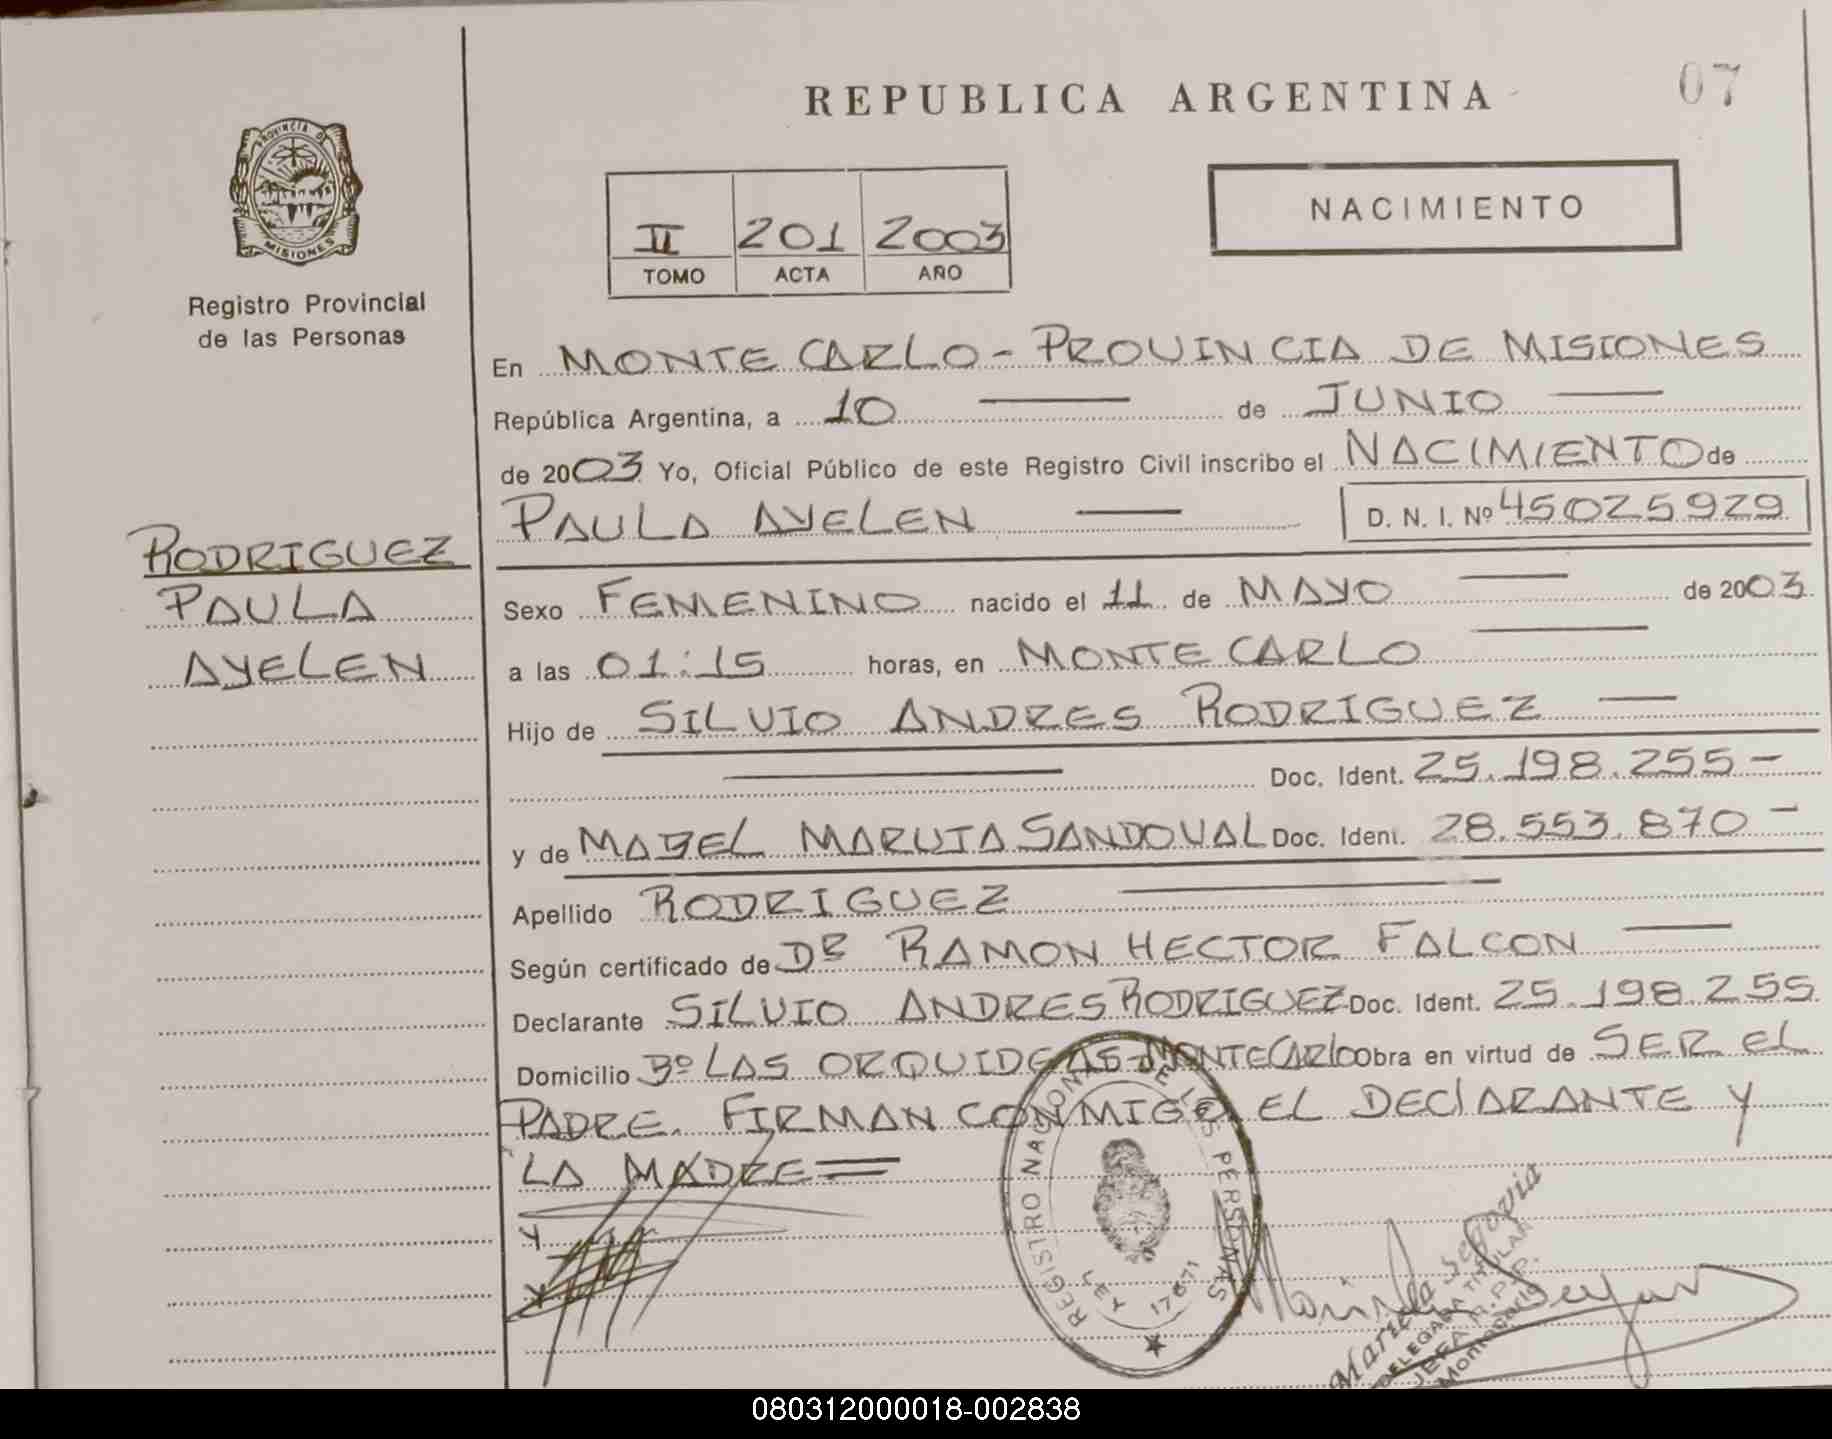 REPUBLICA ARGENTINA
07
PROVINCIA DE
MISIONES
Registro Provincial
de las Personas
II 201 2003
TOMO ACTA AÑO
NACIMIENTO
En MONTE CARLO - PROVINCIA DE MISIONES
República Argentina, a 10 de JUNIO
de 2003 Yo, Oficial Público de este Registro Civil inscribo el NACIMIENTO de
PAULA AYELEN D. N. I. Nº 45025929
RODRIGUEZ
PAULA
AYELEN
Sexo FEMENINO nacido el 11 de MAYO de 2003
a las 01:15 horas, en MONTE CARLO
Hijo de SILVIO ANDRES RODRIGUEZ
Doc. Ident. 25.198.255-
y de MABEL MARUJA SANDOVAL Doc. Ident. 28.553.870-
Apellido RODRIGUEZ
Según certificado de DR RAMON HECTOR FALCON
Declarante SILVIO ANDRES RODRIGUEZ Doc. Ident. 25.198.255
Domicilio Bº LAS ORQUIDEAS-MONTECARLO obra en virtud de SER EL
PADRE. FIRMAN CONMIGO EL DECLARANTE Y
LA MADRE=
REGISTRO NACIONAL DE LAS PERSONAS
LEY 17671
Segovia
DELEGADA TITULAR
JEFA R.P.P.
Montecarlo
080312000018-002838